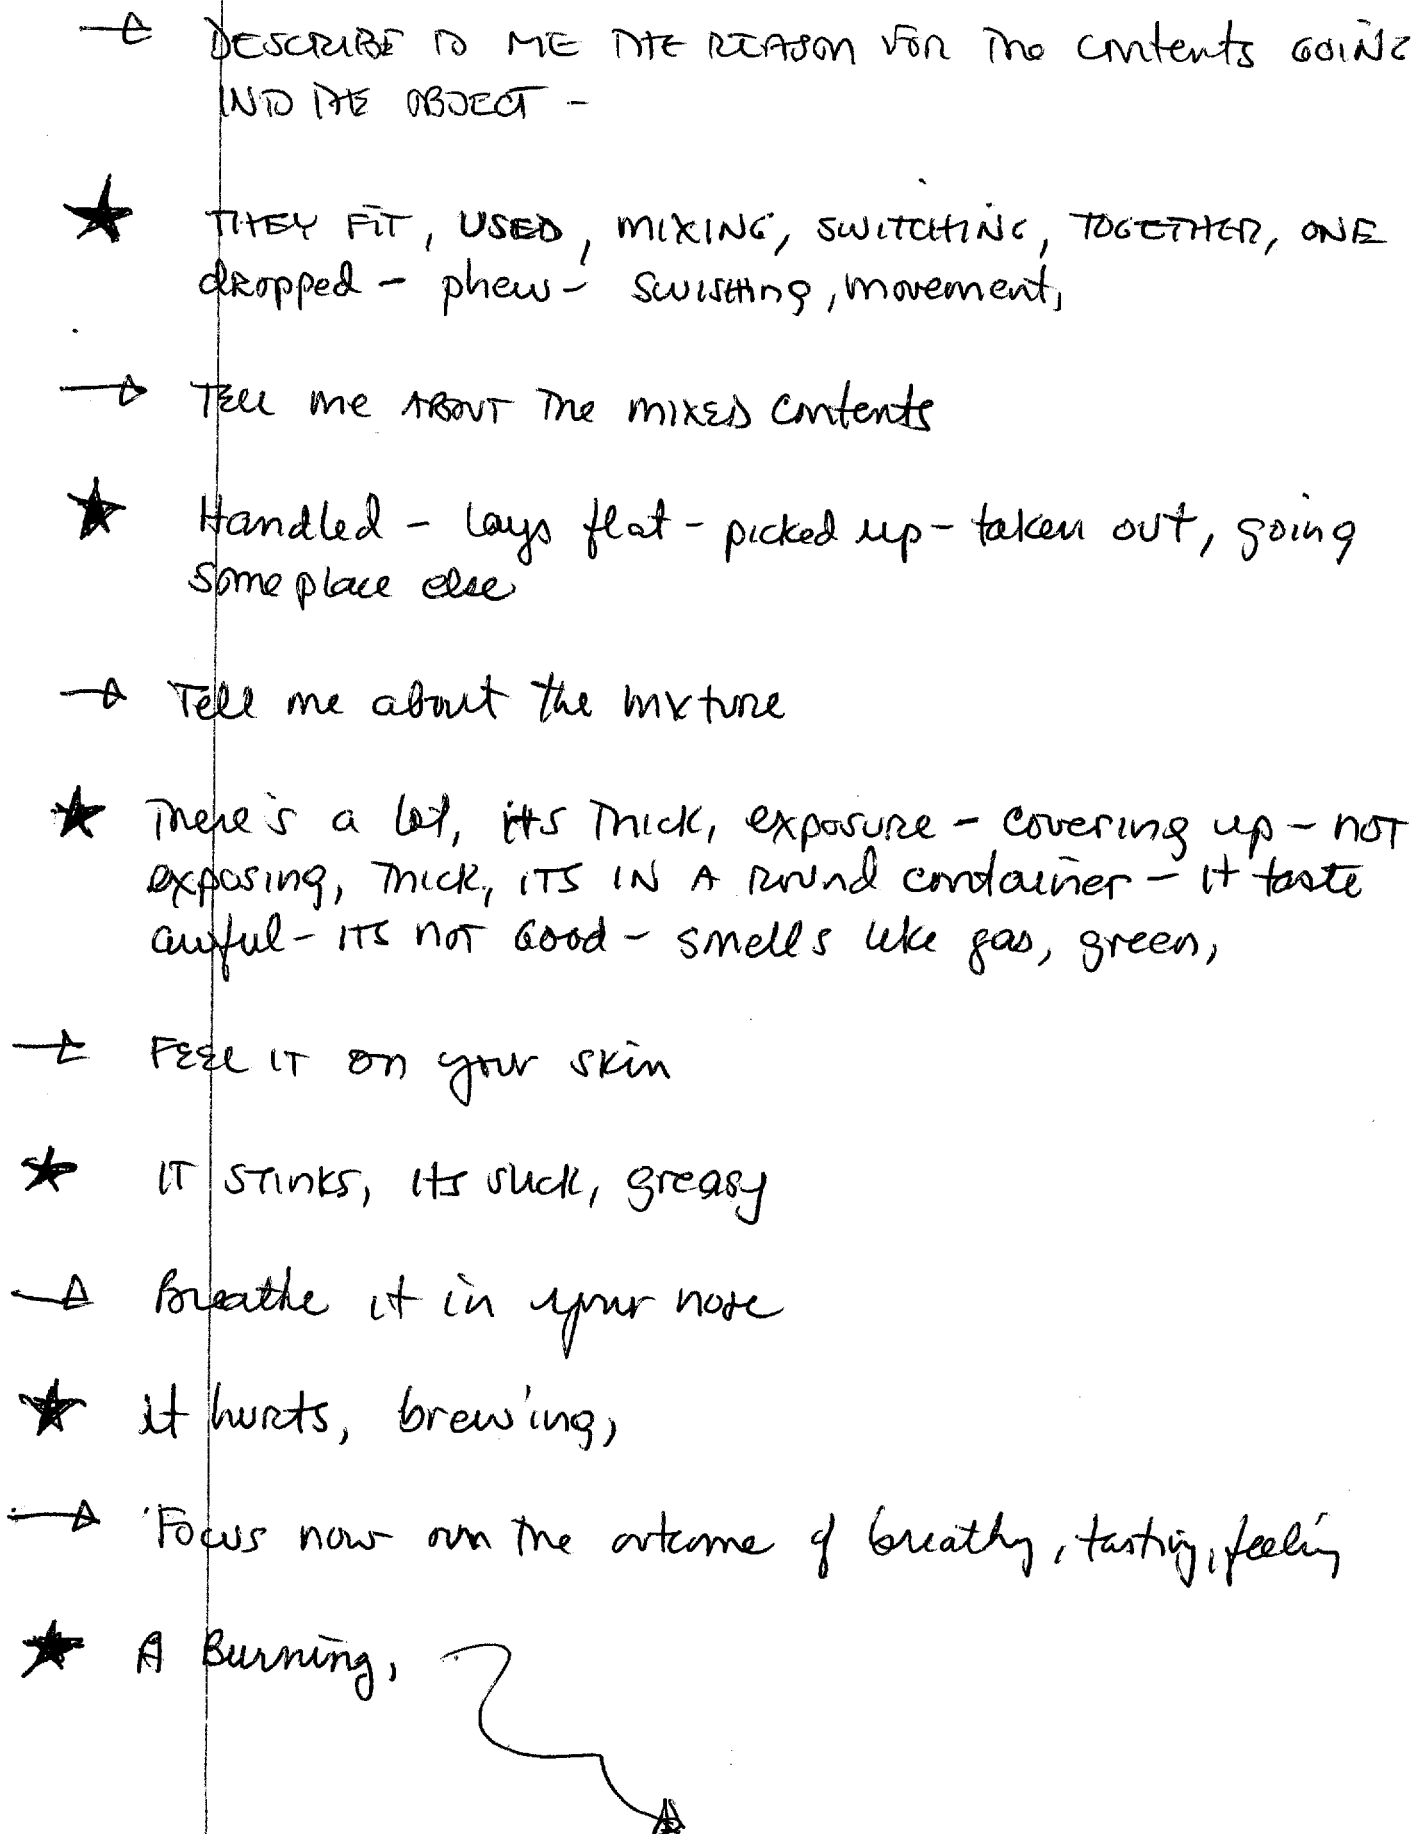 DESCRIBE TO ME THE REASON FOR The contents GOING
INTO THE OBJECT -
THEY FIT, USED, MIXING, SWITCHING, TOGETHER, ONE
dropped - phew - swishing, movement,
TELL me ABOUT The MIXED contents
Handled - lays flat - picked up - taken out, going
someplace else
Tell me about the mixture
There's a lot, its Thick, exposure - covering up - not
exposing, Thick, ITS IN A Round container - it taste
awful - ITS NOT Good - smells like gas, green,
FEEL IT on your skin
IT STINKS, its slick, greasy
Breathe it in your nose
it hurts, brewing,
Focus now on the outcome of breathy, tasting, feeling
A Burning,